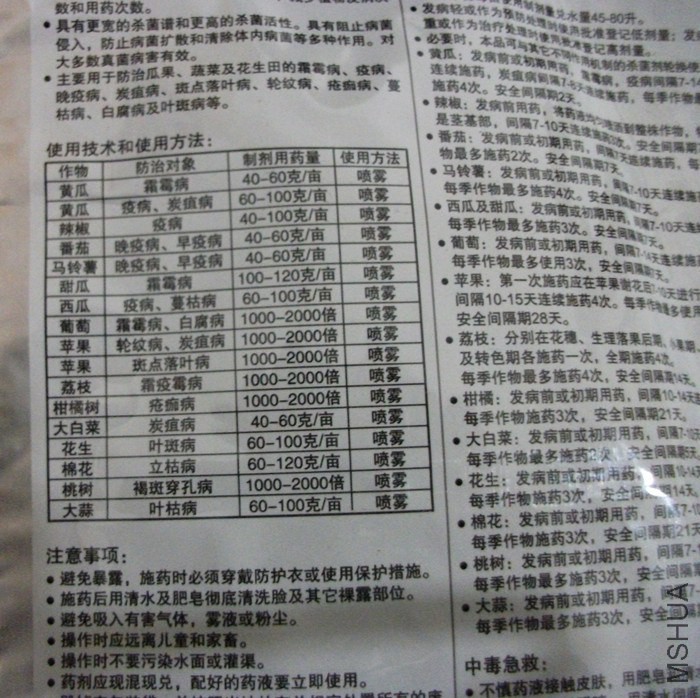 数和用药次数。
具有更宽的杀菌谱和更高的杀菌活性。具有阻止病菌
侵入，防止病菌扩散和清除体内病菌等多种作用。对
大多数真菌病害有效。
主要用于防治瓜果、蔬菜及花生田的霜霉病、疫病、
晚疫病、炭疽病、斑点落叶病、轮纹病、疮痂病、蔓
枯病、白腐病及叶斑病等。
使用技术和使用方法：
作物 防治对象 制剂用药量 使用方法
黄瓜 霜霉病 40-60克/亩 喷雾
黄瓜 疫病、炭疽病 60-100克/亩 喷雾
辣椒 疫病 40-100克/亩 喷雾
番茄 晚疫病、早疫病 40-60克/亩 喷雾
马铃薯 晚疫病、早疫病 40-60克/亩 喷雾
甜瓜 霜霉病 100-120克/亩 喷雾
西瓜 疫病、蔓枯病 60-100克/亩 喷雾
葡萄 霜霉病、白腐病 1000-2000倍 喷雾
苹果 轮纹病、炭疽病 1000-2000倍 喷雾
苹果 斑点落叶病 1000-2000倍 喷雾
荔枝 霜疫霉病 1000-2000倍 喷雾
柑橘树 疮痂病 1000-2000倍 喷雾
大白菜 炭疽病 40-60克/亩 喷雾
花生 叶斑病 60-100克/亩 喷雾
棉花 立枯病 60-120克/亩 喷雾
桃树 褐斑穿孔病 1000-2000倍 喷雾
大蒜 叶枯病 60-100克/亩 喷雾
注意事项：
避免暴露，施药时必须穿戴防护衣或使用保护措施。
施药后用清水及肥皂彻底清洗脸及其它裸露部位。
避免吸入有害气体，雾液或粉尘。
操作时应远离儿童和家畜。
操作时不要污染水面或灌渠。
药剂应现混现兑，配好的药液要立即使用。
使用制剂量兑水量45-80升。
发病轻或作为预防处理时使用批准登记低剂量；
重或作为治疗处理时使用批准登记高剂量。
必要时，本品可与其它不同作用机制的杀菌剂轮换使
黄瓜：发病前或初期用药，霜霉病，疫病间隔7-14
连续施药，炭疽病间隔7-6天连续施药，每季作物最
施药4次。安全间隔期2天。
辣椒：发病前用药，将药液均匀喷洒到整株作物，
是茎基部，间隔7-10天连续施药3次。安全间隔
番茄：发病前或初期用药，间隔7天连续施药，
物最多施药2次。安全间隔7天。
马铃薯：发病前或初期用药，间隔7-10天连续施
每季作物最多施药4次。安全间隔7天。
西瓜及甜瓜：发病前或初期用药，间隔7-10天连续
每季作物最多施药3次。安全间隔7天。
葡萄：发病前或初期用药，间隔7-14天连续施
每季作物最多使用3次，安全间隔7天。
苹果：第一次施药应在苹果谢花后7-10天进行
间隔10-15天连续施药4次。每季作物最多使用
安全间隔期28天。
荔枝：分别在花穗、生理落果后期，小果期，
及转色期各施药一次，全期施药4次，
每季作物最多施药4次，安全间隔期14天。
柑橘：发病前或初期用药，间隔10-14天连
每季作物施药3次，安全间隔期21天。
大白菜：发病前或初期用药，间隔7-10天
每季作物最多施药2次，安全间隔期5天。
花生：发病前或初期用药，间隔10-14
每季作物施药3次，安全间隔期14天。
棉花：发病前或初期用药，间隔7-10
每季作物施药3次，安全间隔期21天
桃树：发病前或初期用药，间隔7-10
每季作物最多施药3次，安全间隔期
大蒜：发病前或初期用药，间隔
每季作物最多施药3次，安全间
中毒急救：
不慎药液接触皮肤，用肥皂
MSHUA